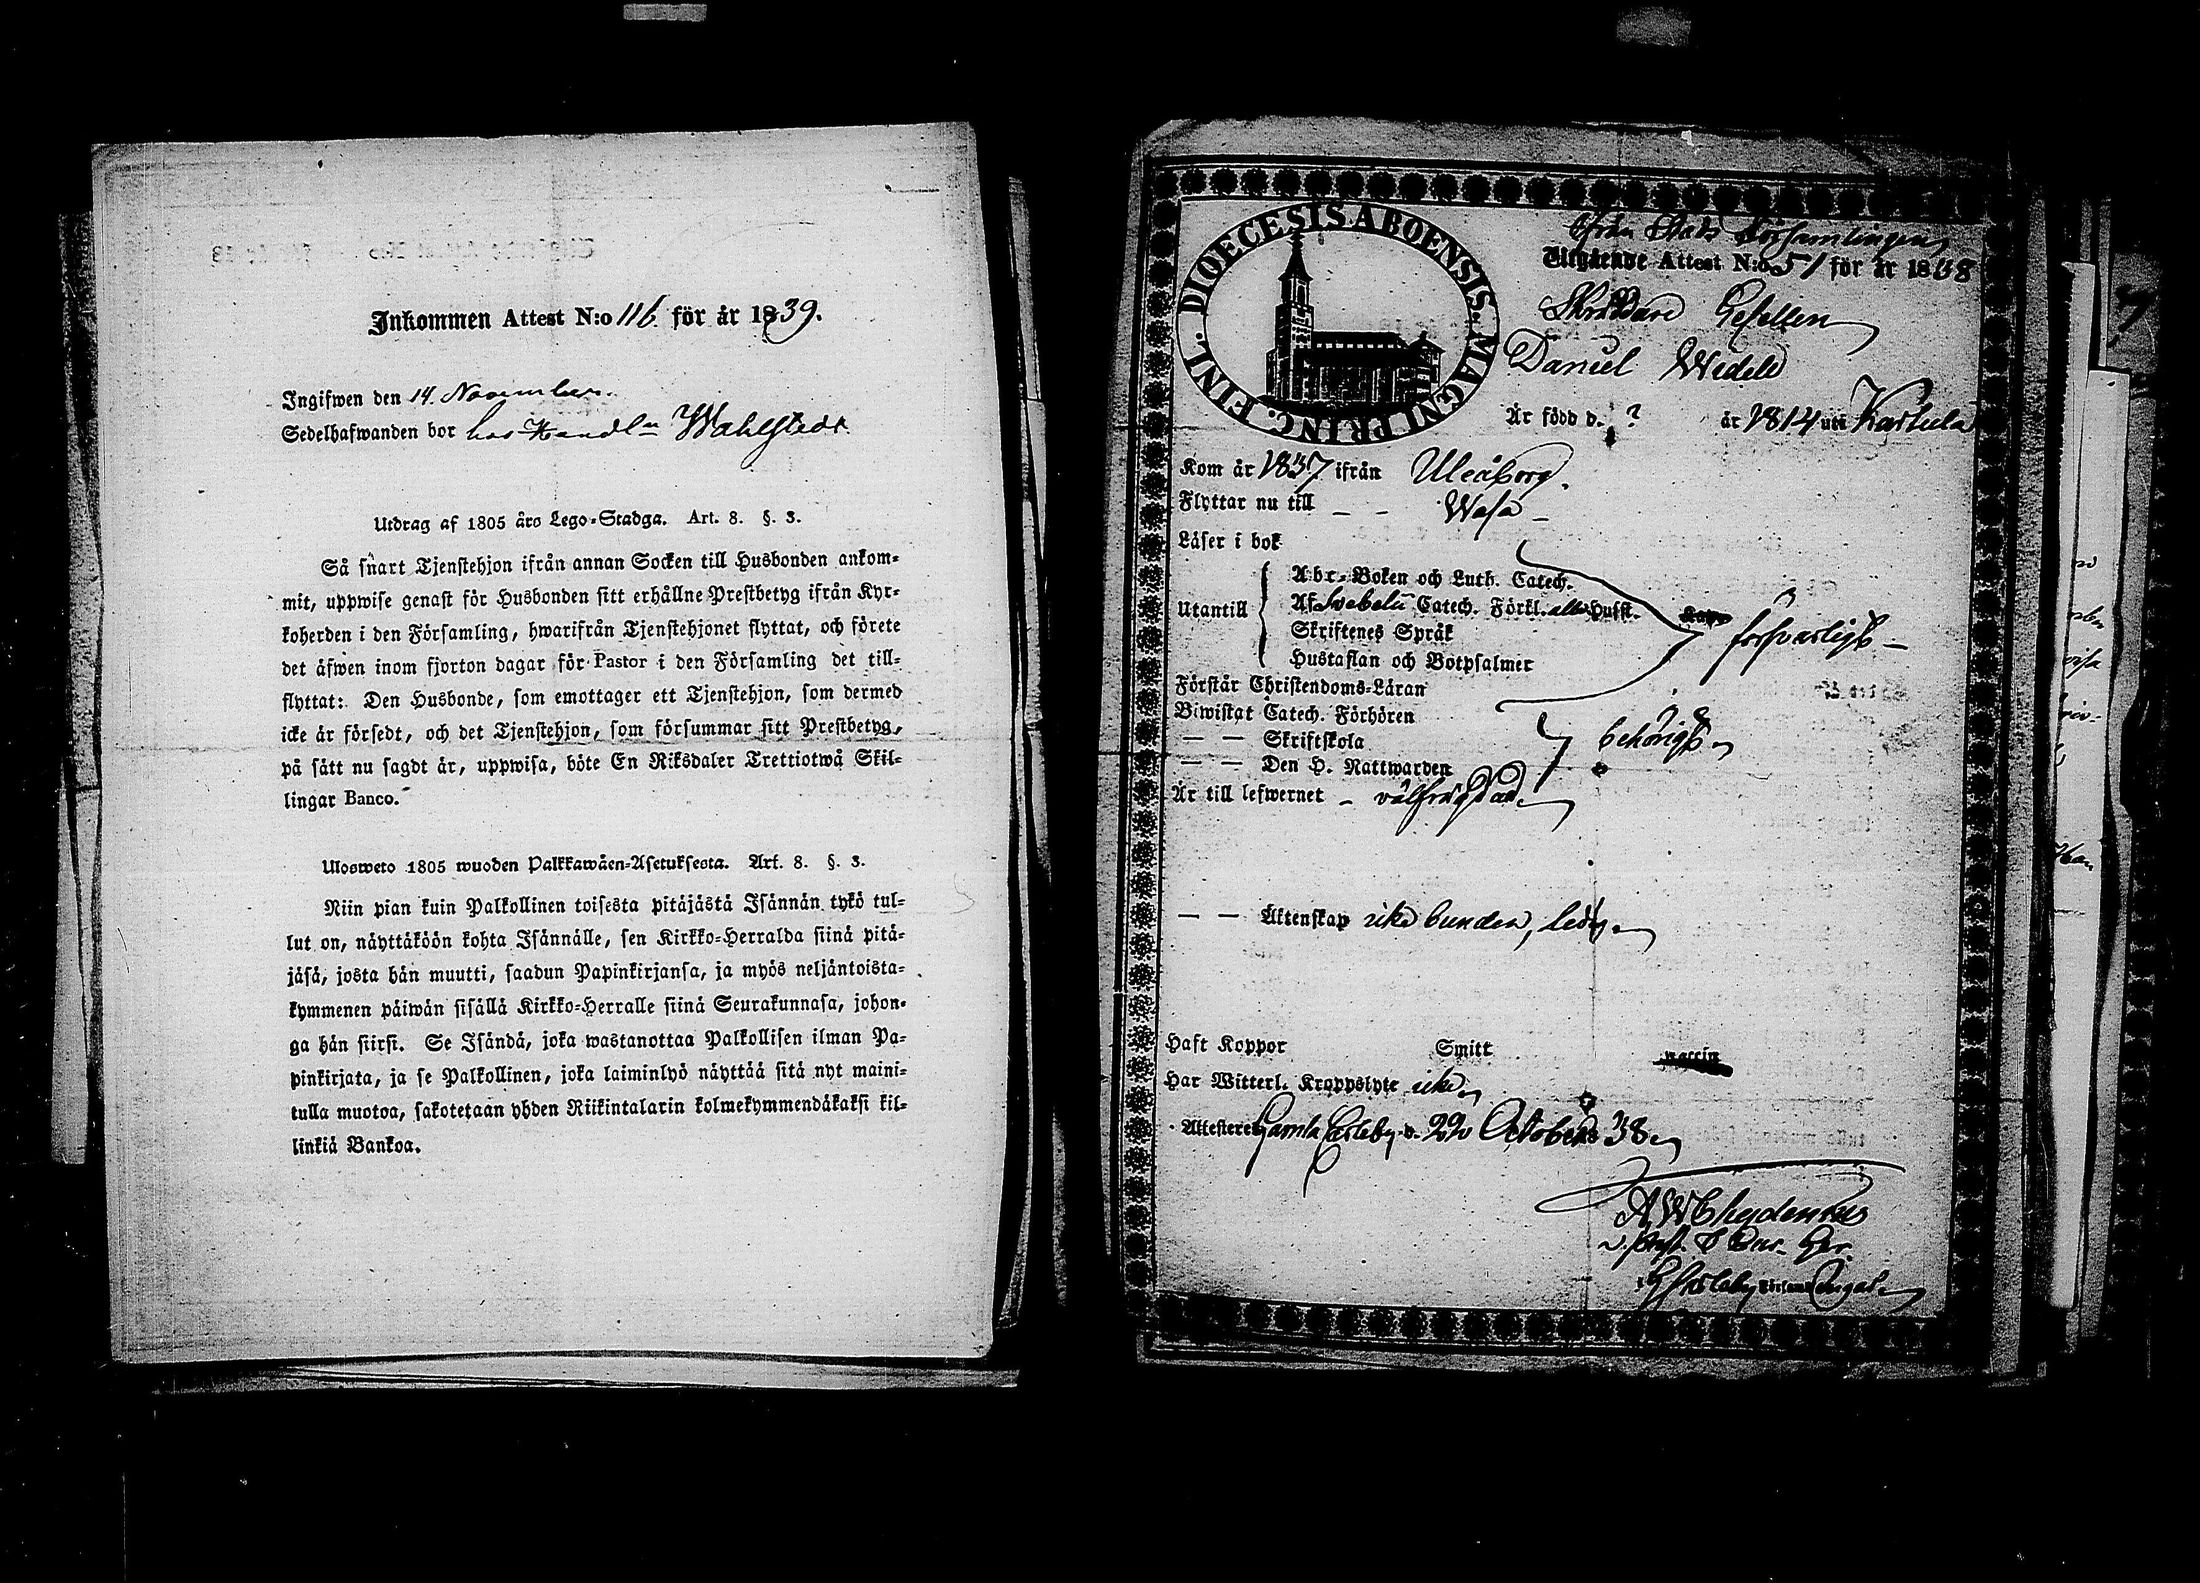 Inkommen Attest N:o 116. för år 1839.
Ingifwen den 14. November.
Sedelhafwanden bor hos Handl:n Wahlstedt
Utdrag af 1805 års Lego-Stadga. Art. 8. §. 3.
Så snart Tjenstehjon ifrån annan Socken till Husbonden ankom-
mit, uppwise genast för Husbonden sitt erhållne Prestbetyg ifrån Kyr-
koherden i den Församling, hwarifrån Tjenstehjonet flyttat, och förete
det äfwen inom fjorton dagar för Pastor i den Församling det till-
flyttat: Den Husbonde, som emottager ett Tjenstehjon, som dermed
icke är försedt, och det Tjenstehjon, som försummar sitt Prestbetyg,
på sätt nu sagdt är, uppwisa, böte En Riksdaler Trettiotwå Skil-
lingar Banco.
Ulosweto 1805 wuoden Palkkawäen-Asetuksesta. Art. 8. §. 3.
Niin pian kuin Palkollinen toisesta pitäjästä Isännän tykö tul-
lut on, näyttäköön kohta Isännälle, sen Kirkko-Herralda siinä pitä-
jäsä, josta hän muutti, saadun Papinkirjansa, ja myös neljäntoista-
kymmenen päiwän sisällä Kirkko-Herralle siinä Seurakunnasa, johon-
ga hän siirsi. Se Isändä, joka wastanottaa Palkollisen ilman Pa-
pinkirjata, ja se Palkollinen, joka laiminlyö näyttää sitä nyt maini-
tulla muotoa, sakotetaan yhden Riikintalarin kolmekymmendäkaksi kil-
linkiä Bankoa.
DIOECESIS ABOENSIS MAGNI PRINC. FINL.
ifrån Stads Församlingen
Utgående Attest N:o 51 för år 1838
Skräddare Gesellen
Daniel Wedell
Är född d. ? år 1814 uti Karstula
Kom år 1837 ifrån Uleåborg.
Flyttar nu till _ _ Wasa _
Läser i bok
Utantill
Abc-Boken och Luth. Catech.
Af Svebelii Catech. Förkl.
Skriftenes Språk
Hustaflan och Botpsalmer
försvarligt _
Förstår Christendoms-Läran
Biwistat Catech. Förhören
— — Skriftskola
— — Den H. Nattwarden
behörigt
Är till lefwernet _ välfrägdad
— — Äktenskap icke bunden, ledig
Haft Koppor Smitt
Har Witterl. Kroppslyte icke
Attesteres Gamla Carleby d. 22 Octobris 38
A W Chydenius